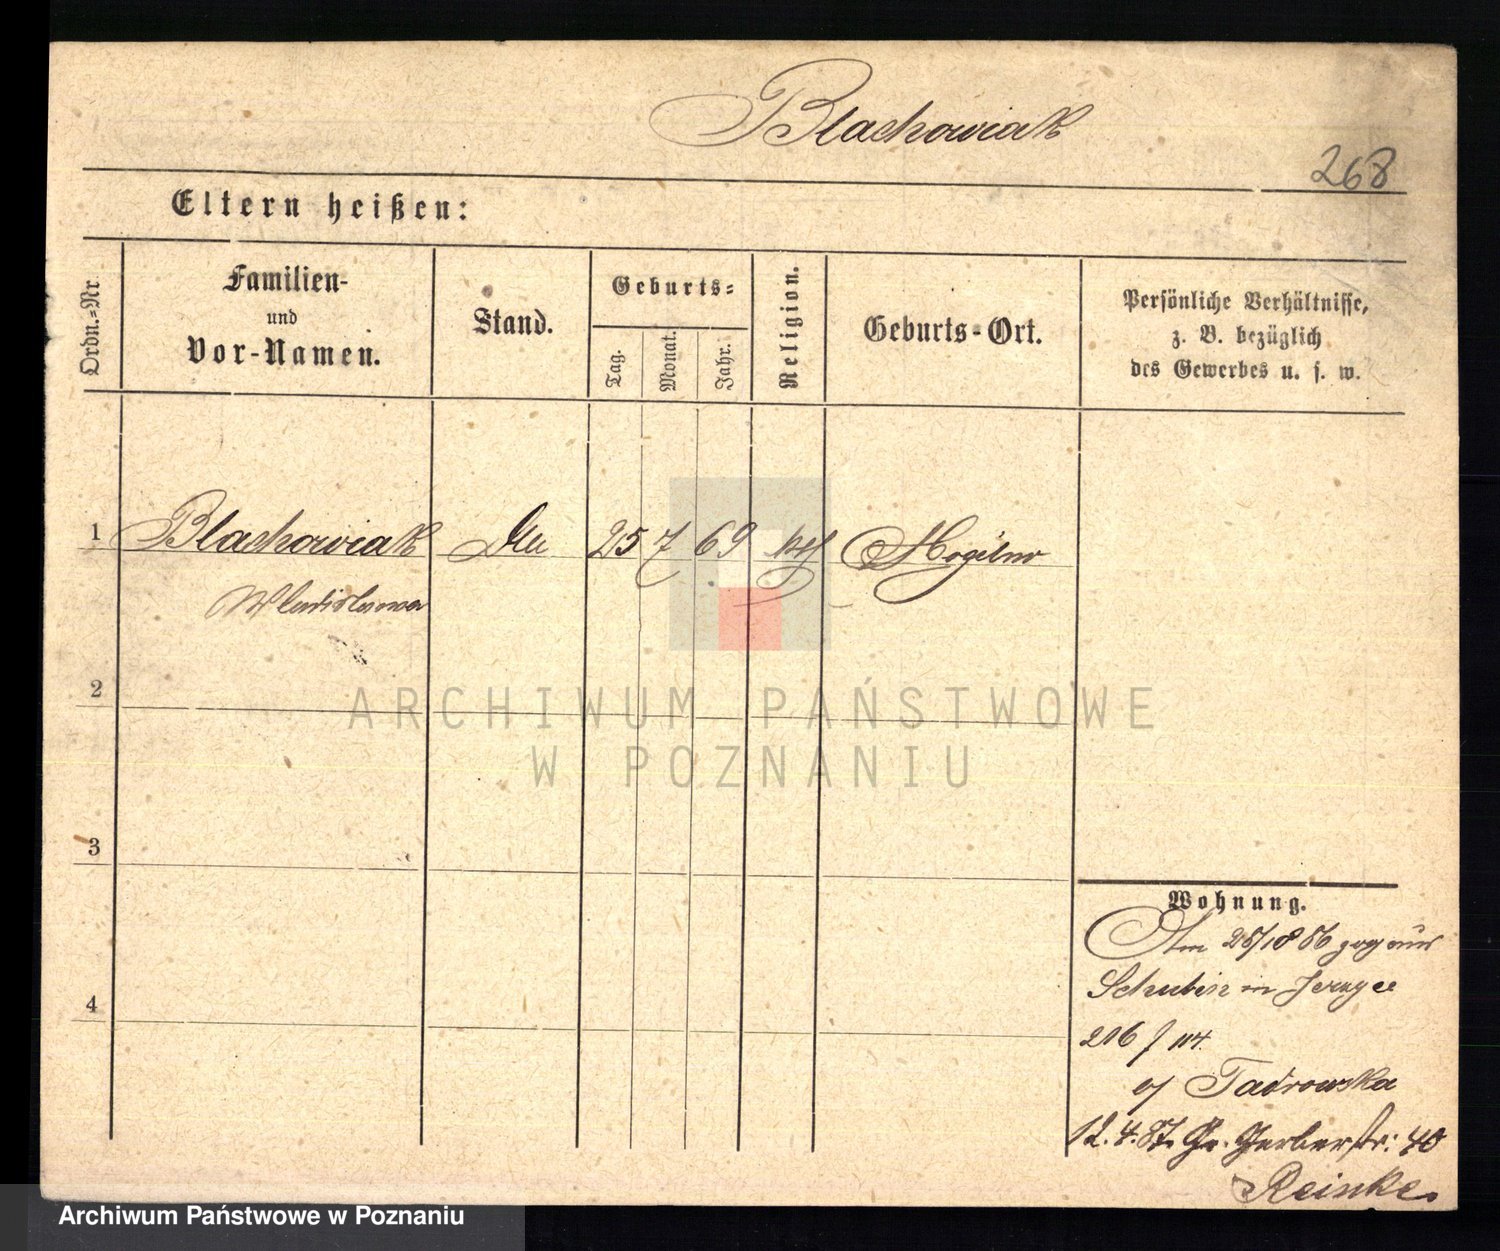 Blachowiak
268
Eltern heißen:
Ordn.-Nr.
Familien-
und
Vor-Namen.
Stand.
Geburts-
Tag.
Monat.
Jahr.
Religion.
Geburts-Ort.
Persönliche Verhältnisse,
z. B. bezüglich
des Gewerbes u. s. w.
1 Blachowiak 25 7 69 Mogilno
Wladislawa
2
3
4
ARCHIWUM PAŃSTWOWE
W POZNANIU
Wohnung.
Am 86 zog aus
Schubin in
216
Tadrowska
12.4.87. Gr. Gerberstr: 40
Reinke
Archiwum Państwowe w Poznaniu